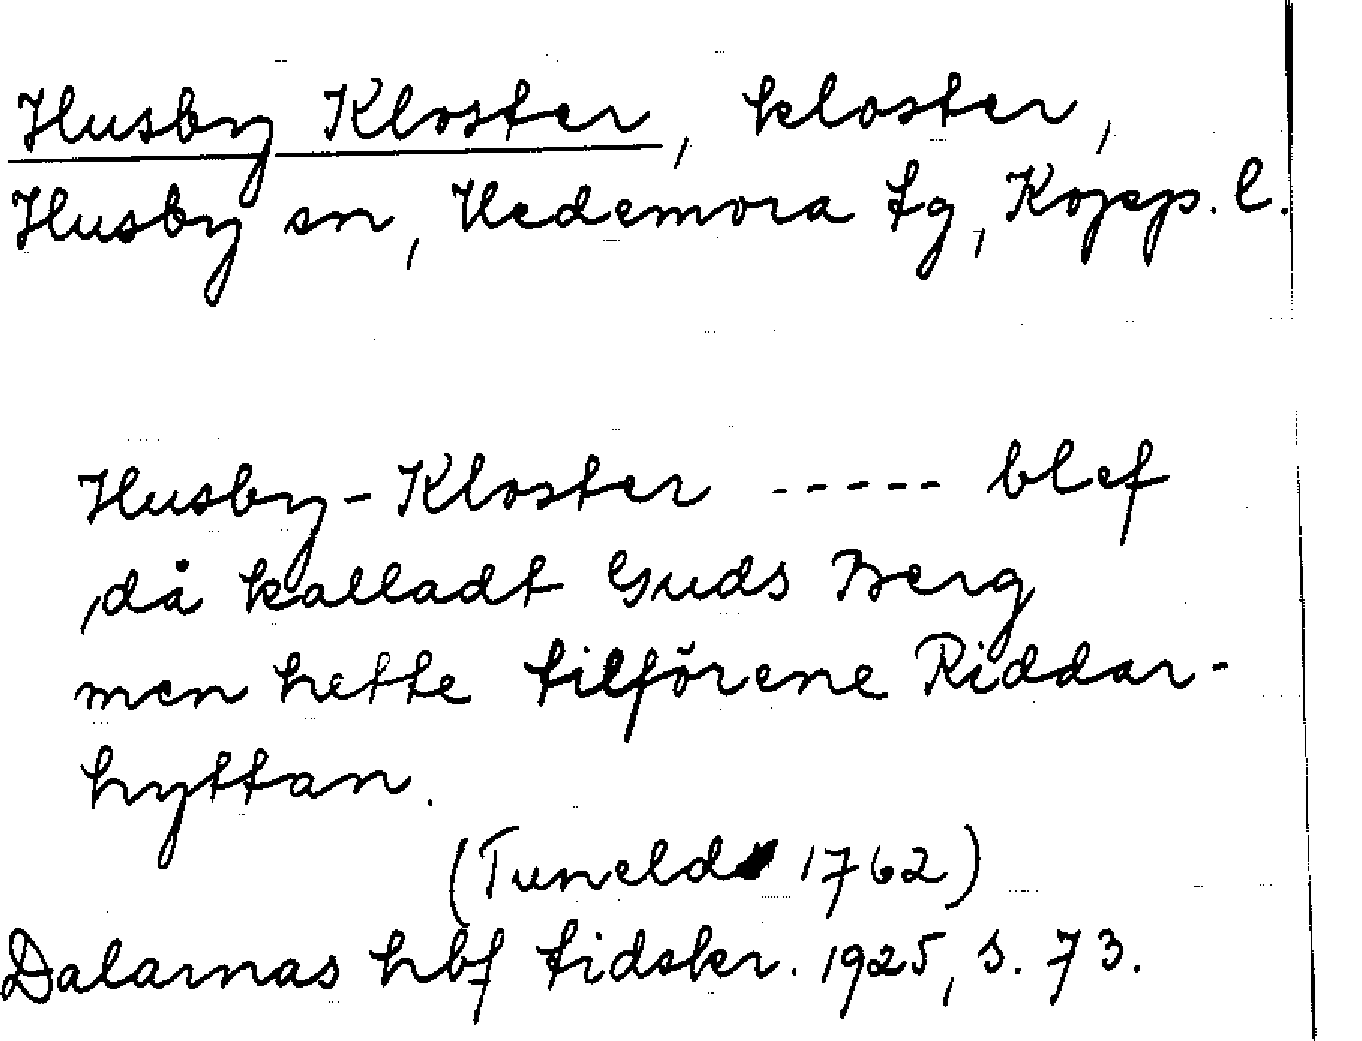 Husby Kloster, kloster,
Husby sn, Hedemora tg, Kopp. l.
Husby-Kloster ----- blef
,då kalladt Guds Berg
men hette tilförene Riddar-
hyttan.
(Tuneld 1762)
Dalarnas hbf tidskr. 1925, s. 73.